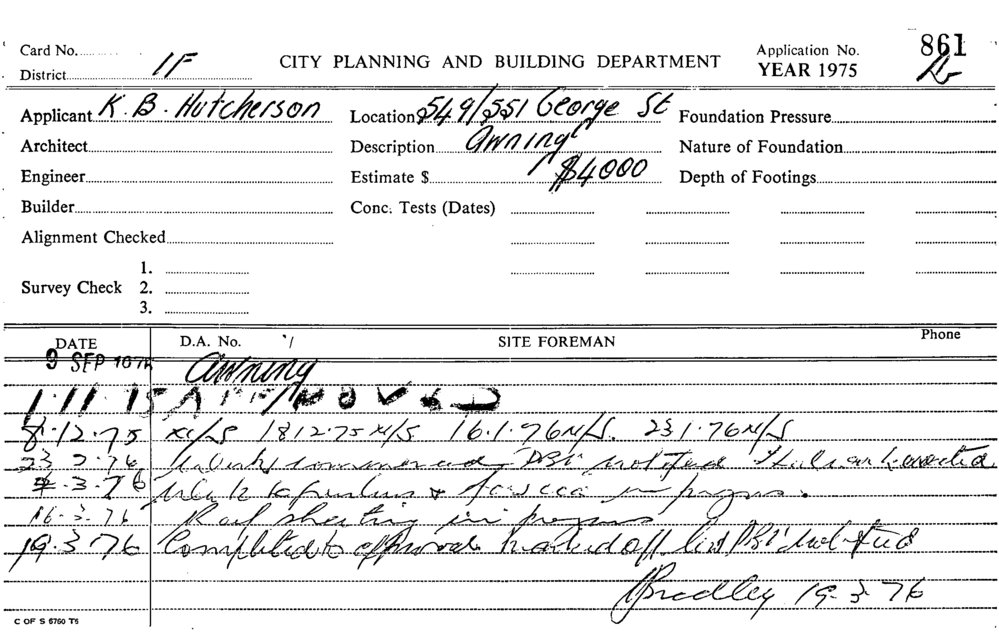 Card No. 1F CITY PLANNING AND BUILDING DEPARTMENT Application No. 861
District YEAR 1975
Applicant K. B. Hutcherson Location 549/551 George St Foundation Pressure
Architect Description Awning Nature of Foundation
Engineer Estimate $ $4000 Depth of Footings
Builder Conc. Tests (Dates)
Alignment Checked
1.
Survey Check 2.
3.
DATE D.A. No. SITE FOREMAN Phone
9 SEP 1975 Awning
1.11.75 APPROVED
8.12.75 N/S 18 12.75 N/S 16.1.76 N/S. 23 1.76 N/S
23 2.76 Work commenced DBI notified
2.3.76 Work to & fascia in progress.
16.3.76 Roof sheeting in progress
19.3.76 Completed to approval marked off list DBI Notified
Bradley 19.3.76
C OF S 6760 T5